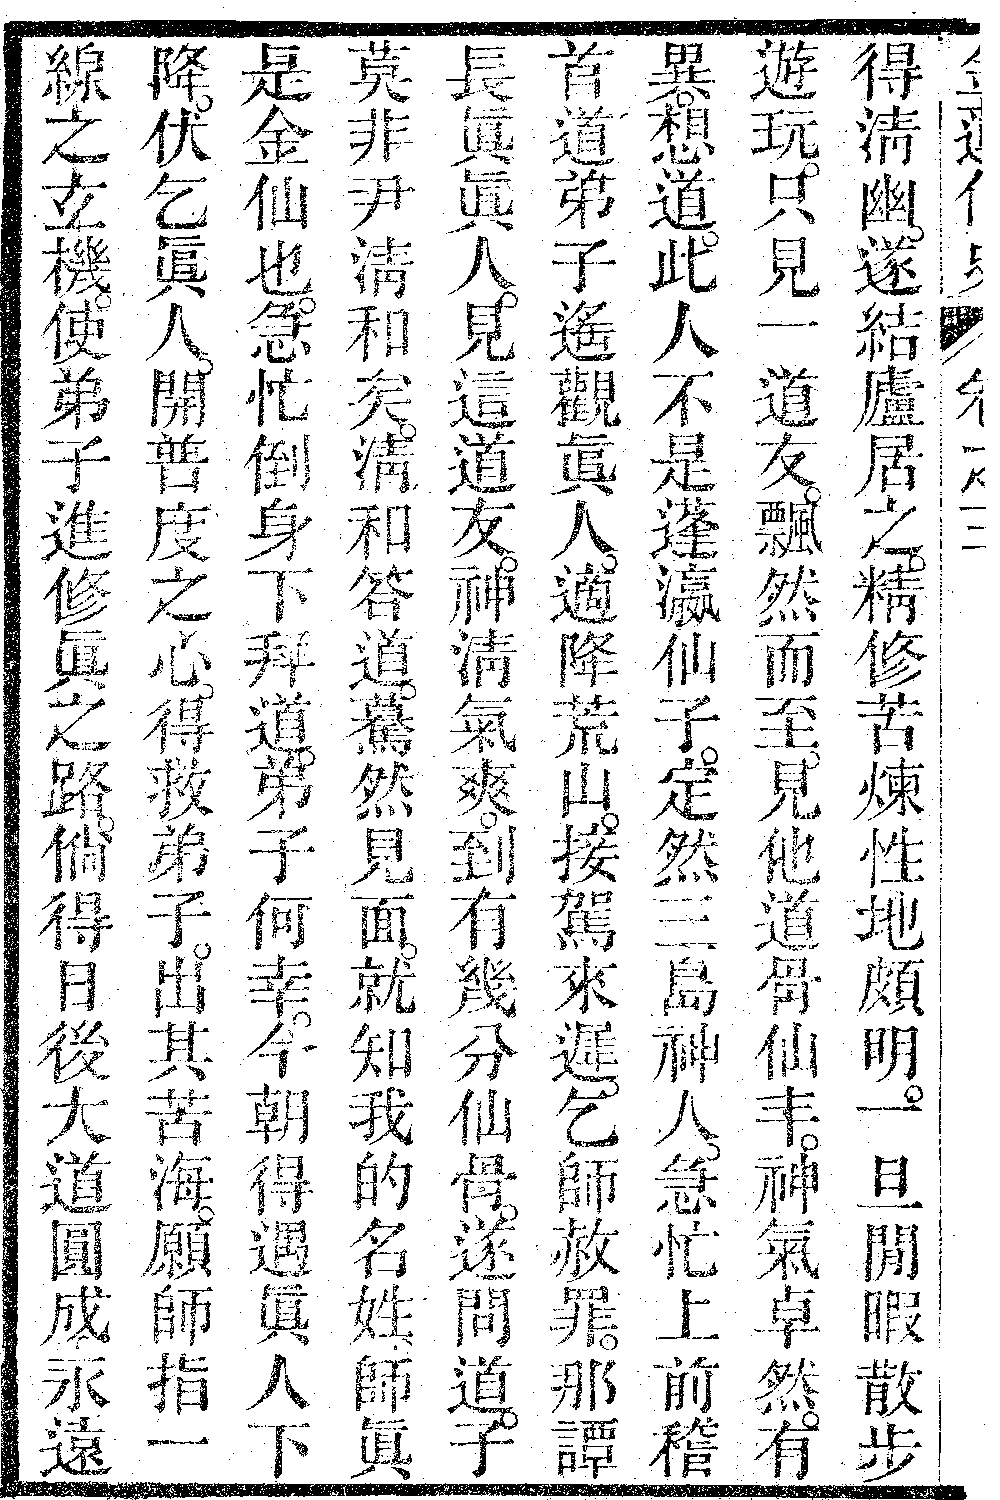 得清幽。遂結廬居之。精修苦煉性地頗明。一旦閒暇散步
遊玩。只見一道友。飄然而至。見他道骨仙丰。神氣卓然。有
異。想道。此人不是蓬瀛仙子。定然三島神人。急忙上前稽
首道弟子遙觀眞人。適降荒山。接駕來遲。乞師赦罪。那譚
長眞眞人。見這道友。神清氣爽。到有幾分仙骨。遂問道。子
莫非尹清和矣。清和答道。驀然見面。就知我的名姓、師眞
是金仙也。急忙倒身下拜道。弟子何幸。今朝得遇眞人下
降。伏乞眞人。開普度之心。得救弟子。出其苦海。願師指一
線之玄機。使弟子進修眞之路。倘得日後大道圓成永遠